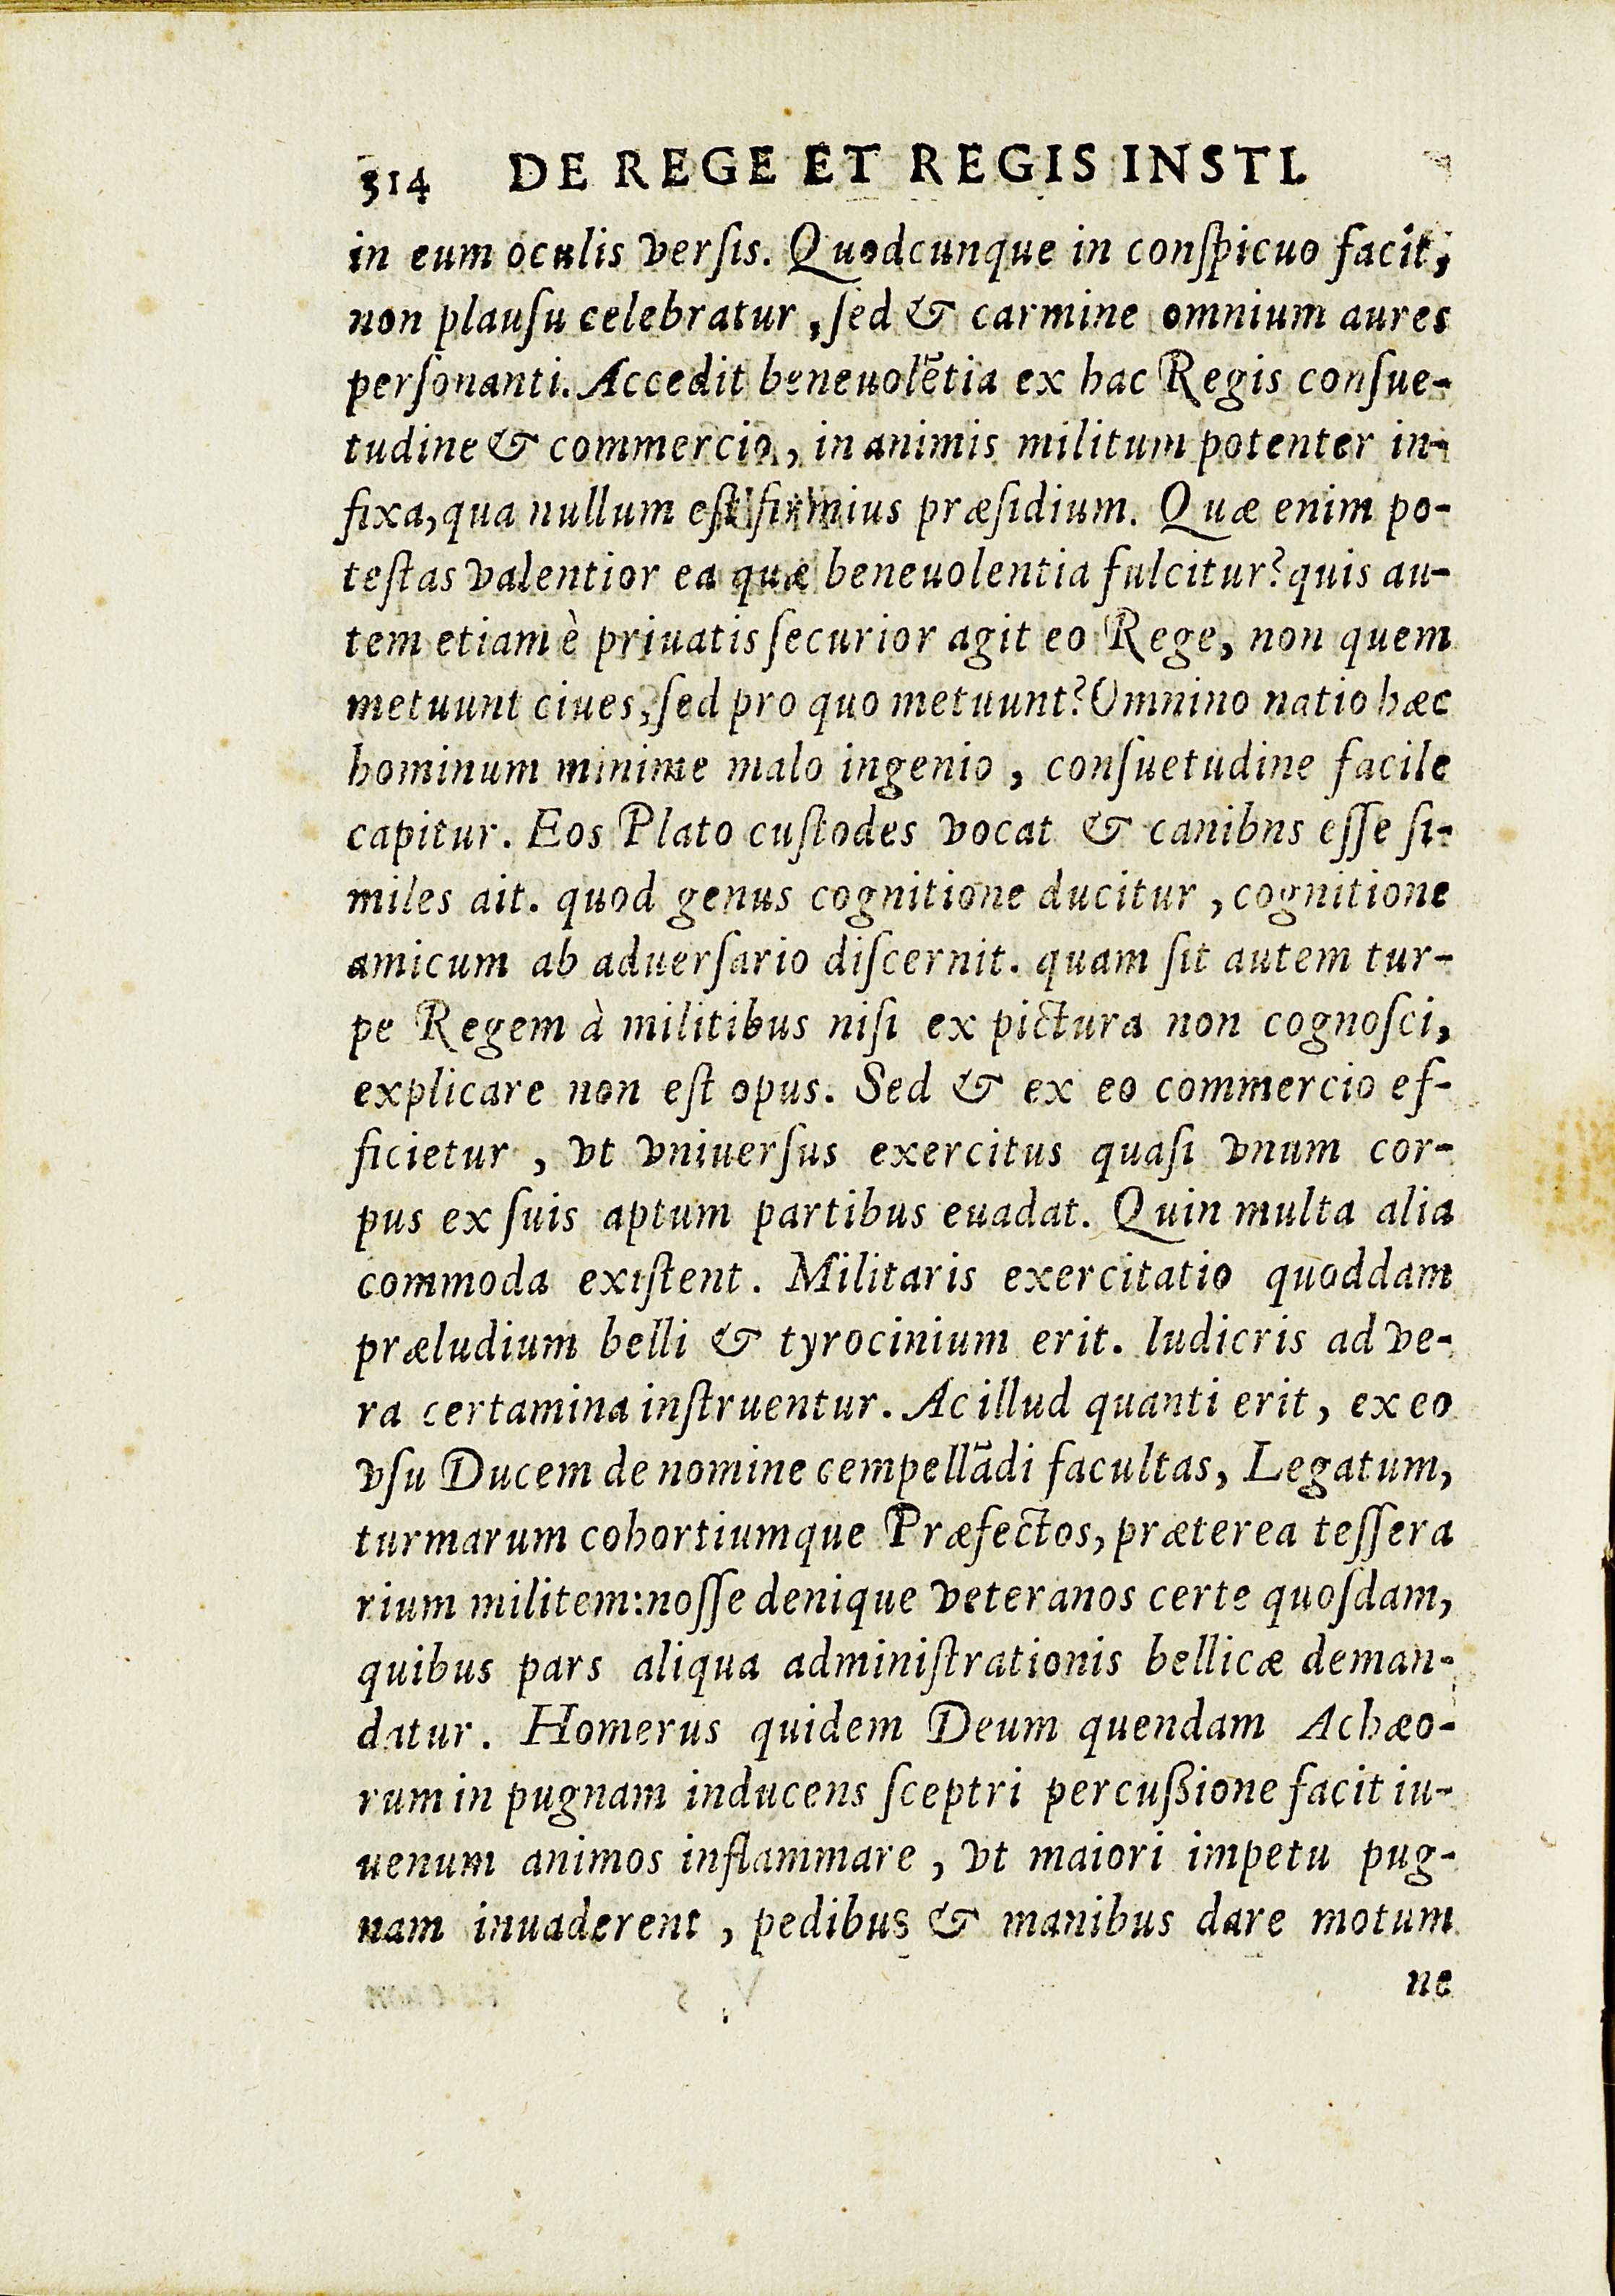 314 DE REGE ET REGIS INSTI.
in eum oculis verſis. Quodcunque in conſpicuo facit,
non plauſu celebratur, ſed & carmine omnium aures
perſonanti. Accedit beneuolẽtia ex hac Regis conſue-
tudine & commercio, in animis militum potenter in-
fixa, qua nullum eſt firmius præſidium. Quæ enim po-
teſtas valentior ea quæ beneuolentia fulcitur? quis au-
tem etiam è priuatis ſecurior agit eo Rege, non quem
metuunt ciues, ſed pro quo metuunt? Omnino natio hæc
hominum minime malo ingenio, conſuetudine facile
capitur. Eos Plato cuſtodes vocat & canibns eſſe ſi-
miles ait. quod genus cognitione ducitur, cognitione
amicum ab aduerſario diſcernit. quam ſit autem tur-
pe Regem à militibus niſi ex pictura non cognoſci,
explicare non eſt opus. Sed & ex eo commercio ef-
ficietur, vt vniuerſus exercitus quaſi vnum cor-
pus ex ſuis aptum partibus euadat. Quin multa alia
commoda exiſtent. Militaris exercitatio quoddam
præludium belli & tyrocinium erit. ludicris ad ve-
ra certamina inſtruentur. Ac illud quanti erit, ex eo
vſu Ducem de nomine cempellãdi facultas, Legatum,
turmarum cohortiumque Præfectos, præterea teſſera
rium militem: noſſe denique veteranos certe quoſdam,
quibus pars aliqua adminiſtrationis bellicæ deman-
datur. Homerus quidem Deum quendam Achæo-
rum in pugnam inducens ſceptri percuſsione facit iu-
uenum animos inflammare, vt maiori impetu pug-
nam inuaderent, pedibus & manibus dare motum
ne